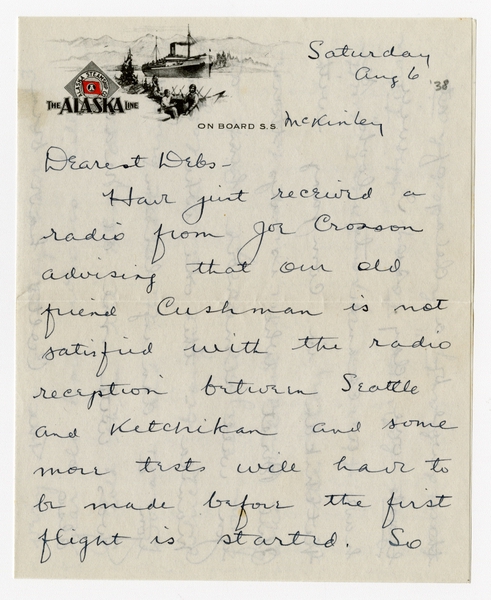 Saturday
Aug 6 '38
ALASKA STEAMSHIP CO.
A
THE ALASKA LINE
ON BOARD S.S. McKinley
Dearest Debs -
Have just received a
radio from Joe Crosson
advising that our old
friend Cushman is not
satisfied with the radio
reception between Seattle
and Ketchikan and some
more tests will have to
be made before the first
flight is started. So